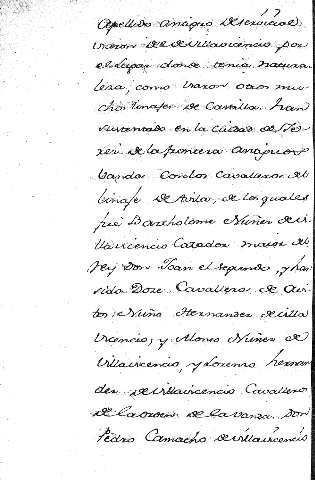 Apellido antiguo
usaron del de villavicencio por
el lugar donde tenia natura
leza, como usaron otros mu
chos linajes de Castilla han
sustentado en la ciudad de Xe
rez de la frontera antiguos
bandos con los Cavalleros del
linaje de Avila, de los quales
fué Bartholome Nuñez de vi
llavicencio Cazador maior del
Rey Don Joan el segundo, y han
sido Doze Cavalleros de Avi
tos, Nuño Hernandez de villa
vicencio, y Alonso Nuñez de
villavicencio y Lorenso hernan
dez de villavicencio Cavallero
de la orden de la vanda Don
Pedro Camacho de villavicencio